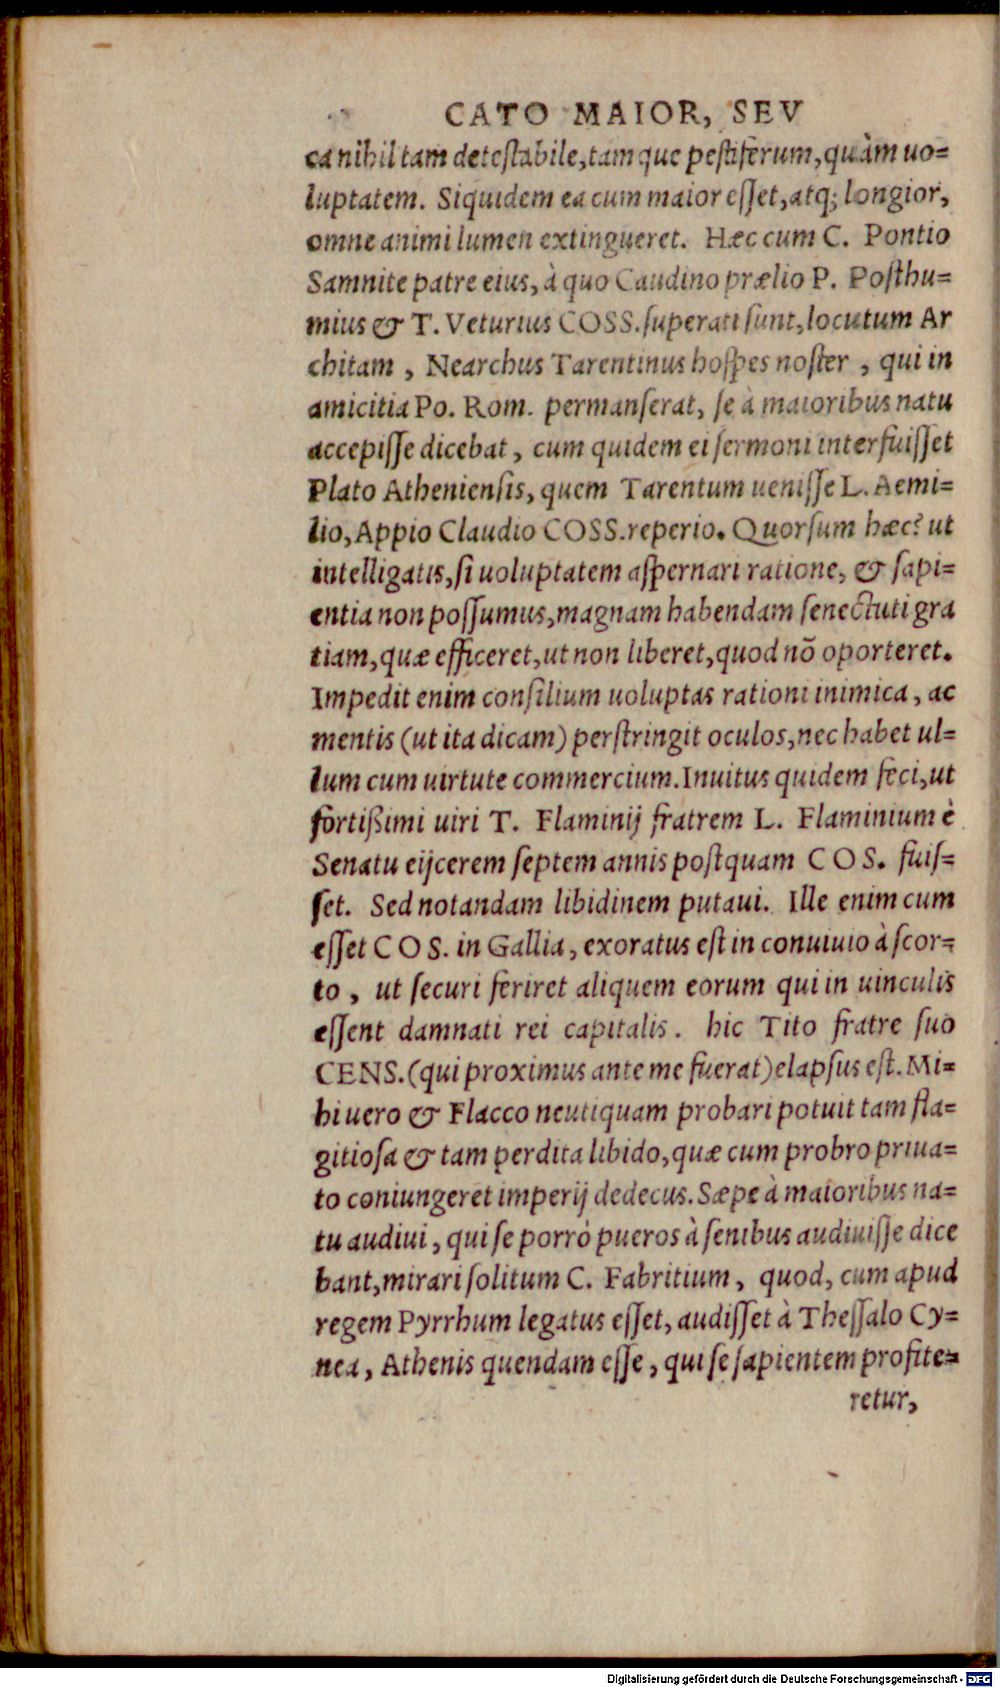 CATO MAIOR, SEV
ca nihil tam detestabile, tamque pestiferum, quàm uo=
luptatem. Siquidem ea cum maior esset, atq; longior,
omne animi lumen extingueret. Hæc cum C. Pontio
Samnite patre eius, à quo Caudino prælio P. Posthu=
mius & T. Veturius COSS. superati sunt, locutum Ar
chitam, Nearchus Tarentinus hospes noster, qui in
amicitia Po. Rom. permanserat, se à maioribus natu
accepisse dicebat, cum quidem ei sermoni interfuisset
Plato Atheniensis, quem Tarentum uenisse L. Aemi=
lio, Appio Claudio COSS. reperio. Quorsum hæc? ut
intelligatis, si uoluptatem aspernari ratione, & sapi=
entia non possumus, magnam habendam senectuti gra
tiam, quæ efficeret, ut non liberet, quod nõ oporteret.
Impedit enim consilium uoluptas rationi inimica, ac
mentis (ut ita dicam) perstringit oculos, nec habet ul=
lum cum uirtute commercium. Inuitus quidem feci, ut
fortißimi uiri T. Flaminij fratrem L. Flaminium è
Senatu eijcerem septem annis postquam COS. fuis=
set. Sed notandam libidinem putaui. Ille enim cum
esset COS. in Gallia, exoratus est in conuiuio à scor=
to, ut securi feriret aliquem eorum qui in uinculis
essent damnati rei capitalis. hic Tito fratre suo
CENS. (qui proximus ante me fuerat) elapsus est. Mi=
hi uero & Flacco neutiquam probari potuit tam fla=
gitiosa & tam perdita libido, quæ cum probro priua=
to coniungeret imperij dedecus. Sæpe à maioribus na=
tu audiui, qui se porrò pueros à senibus audiuisse dice
bant, mirari solitum C. Fabritium, quod, cum apud
regem Pyrrhum legatus esset, audisset à Thessalo Cy=
nea, Athenis quendam esse, qui se sapientem profite=
retur,
Digitalisierung gefördert durch die Deutsche Forschungsgemeinschaft - DFG